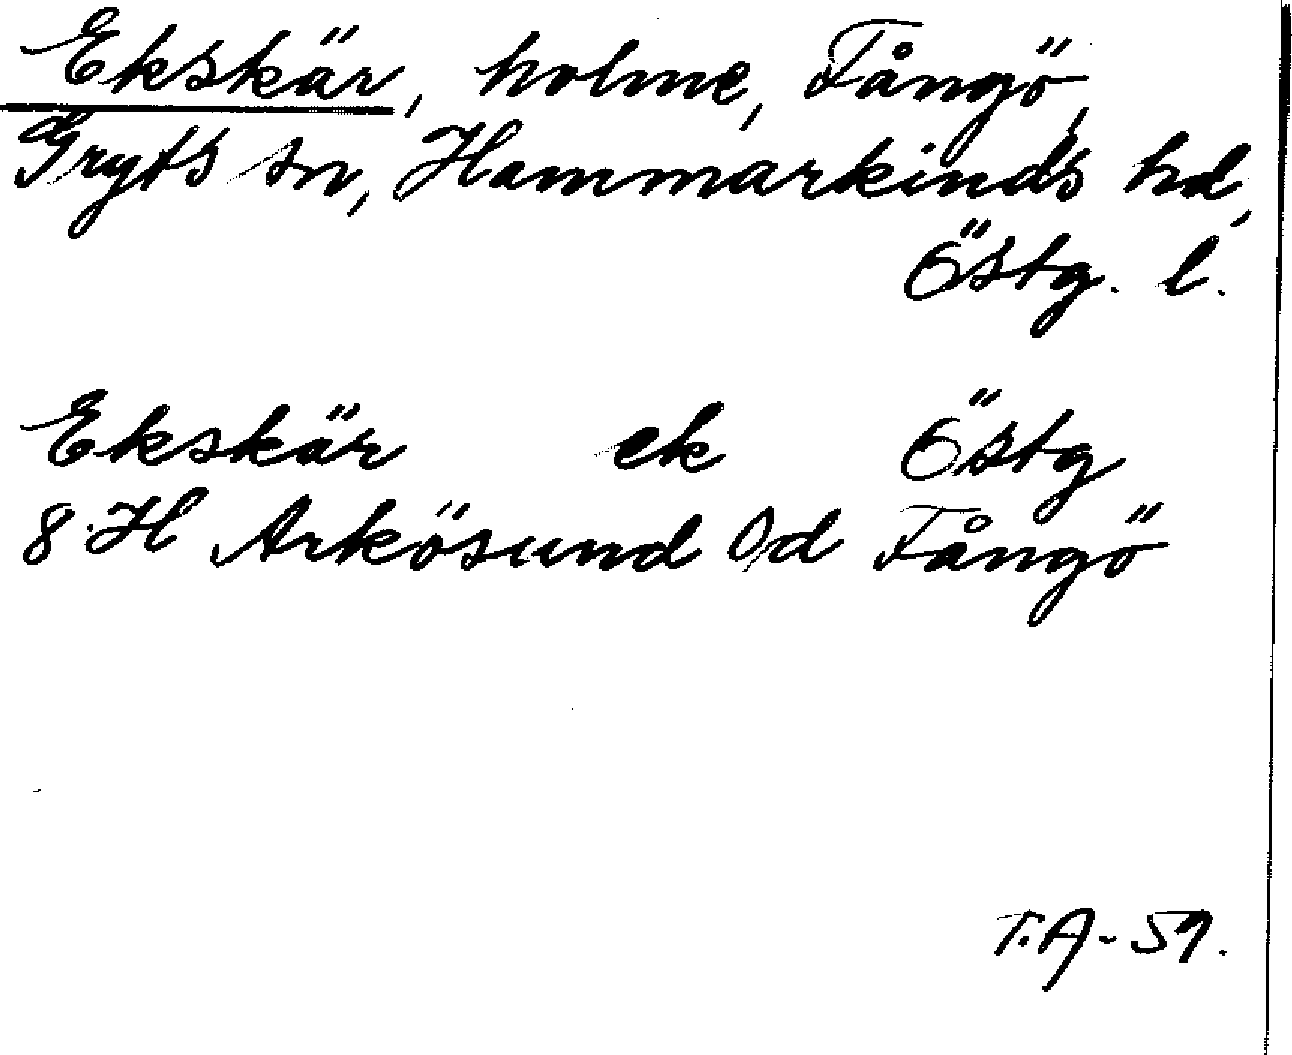 Ekskär, holme, Fångö,
Gryts sn, Hammarkinds hd,
Östg. l.
Ekskär ek Östg
8 H Arkösund 0d Fångö
T.A-57.